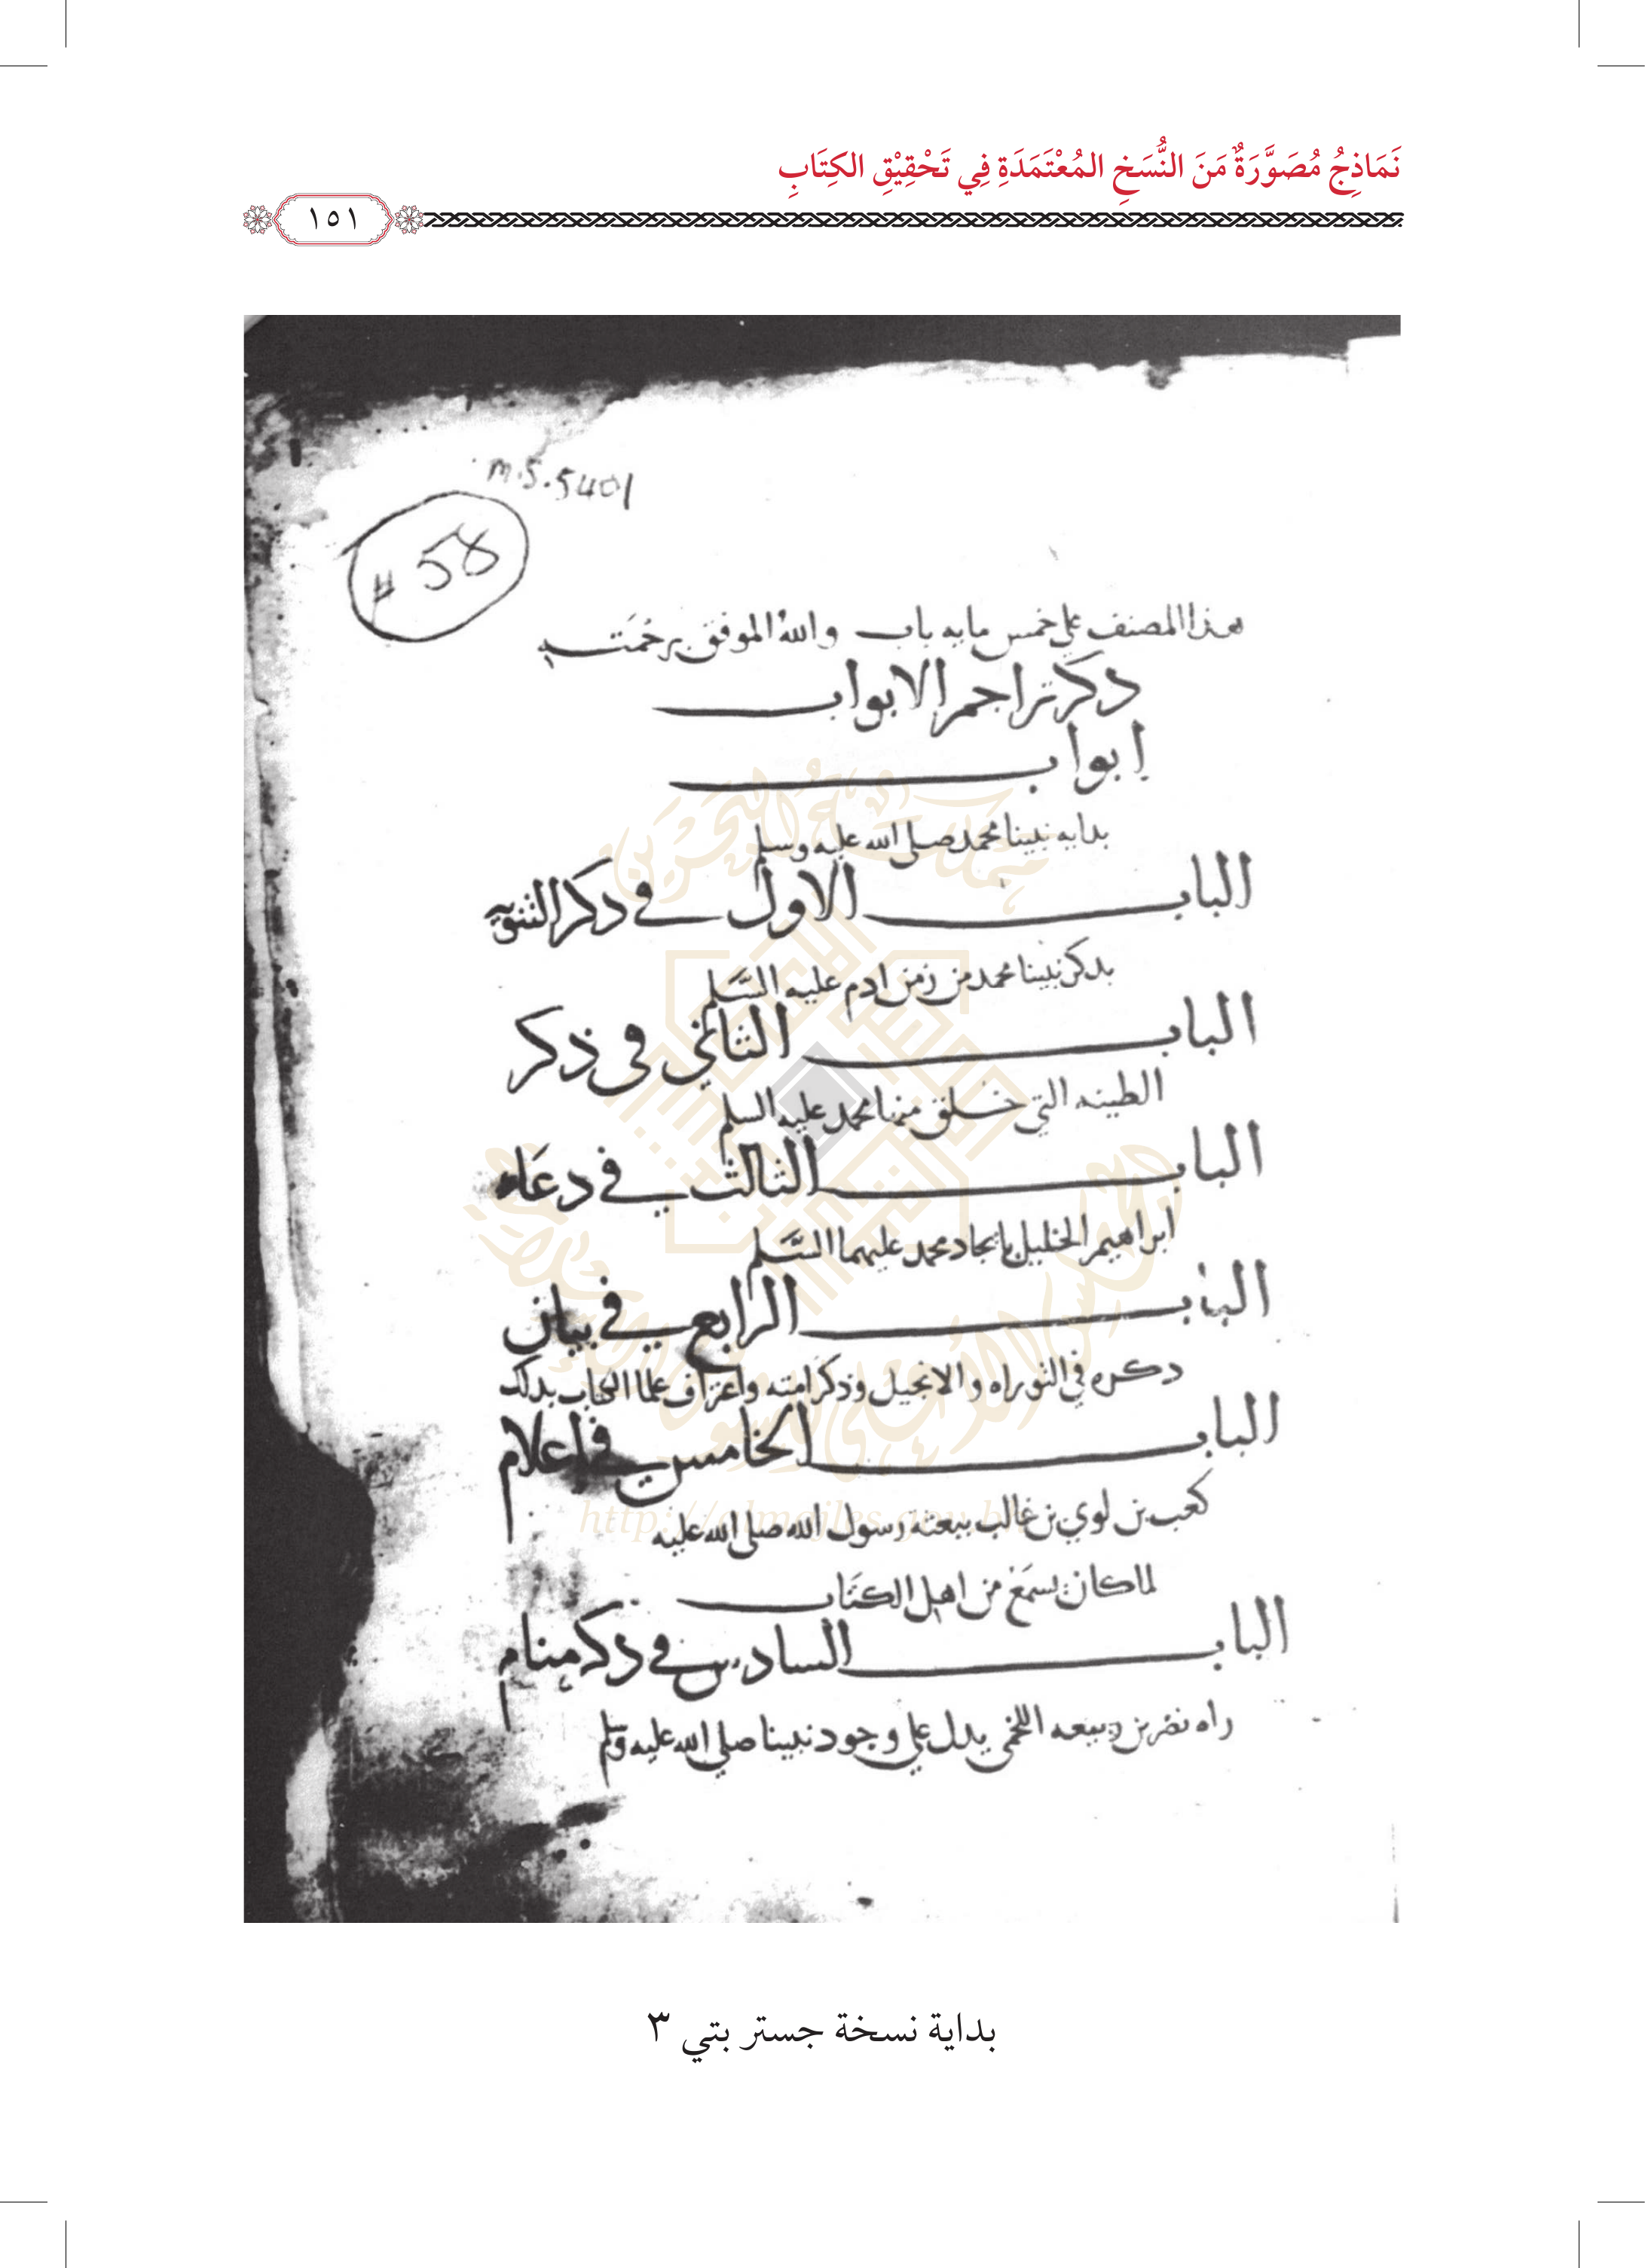 نَمَاذِجُ مُصَوَّرَةٌ مَنَ النُّسَخِ المُعْتَمَدَةِ فِي تَحْقِيْقِ الكِتَابِ
١٥١
m.s.5401
# 58
هذا المصنف على خمس مايه باب والله الموفق برحمته
ذكر تراجم الابواب
ابواب
بدايه نبينا محمد صلى الله عليه وسلم
الباب الاول في ذكر التنويه
بذكر نبينا محمد من زمن ادم عليه السَّلم
الباب الثاني في ذكر
الطينه التي خلق منها محمد عليه السلم
الباب الثالث في دعاء
ابراهيم الخليل بايجاد محمد عليهما السَّلم
الباب الرابع في بيان
ذكره في التوراه والانجيل وذكر امته واعتراف علما الكتاب بذلك
الباب الخامس في اعلام
كعب بن لوي بن غالب ببعثة رسول الله صلى الله عليه
لما كان يسمع من اهل الكتاب
الباب السادس في ذكر منام
راه نصر بن ربيعه اللخمي يدل على وجود نبينا صلى الله عليه وسلم
http://almajles.gov.bh
بداية نسخة جستر بتي ٣